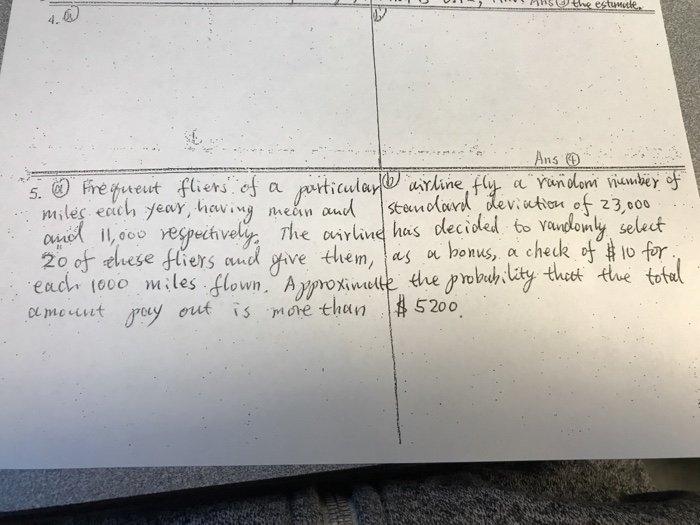 Ans ③ the estimate.
4. ⓐ ⓑ
Ans ④
5. ⓐ Frequent fliers of a particular ⓑ airline, fly a random number of
miles each year, having mean and standard deviation of 23,000
and 11,000 respectively. The airline has decided to randomly select
20 of these fliers and give them, as a bonus, a check of $10 for
each 1000 miles flown. Approximate the probability that the total
amount pay out is more than $5200.